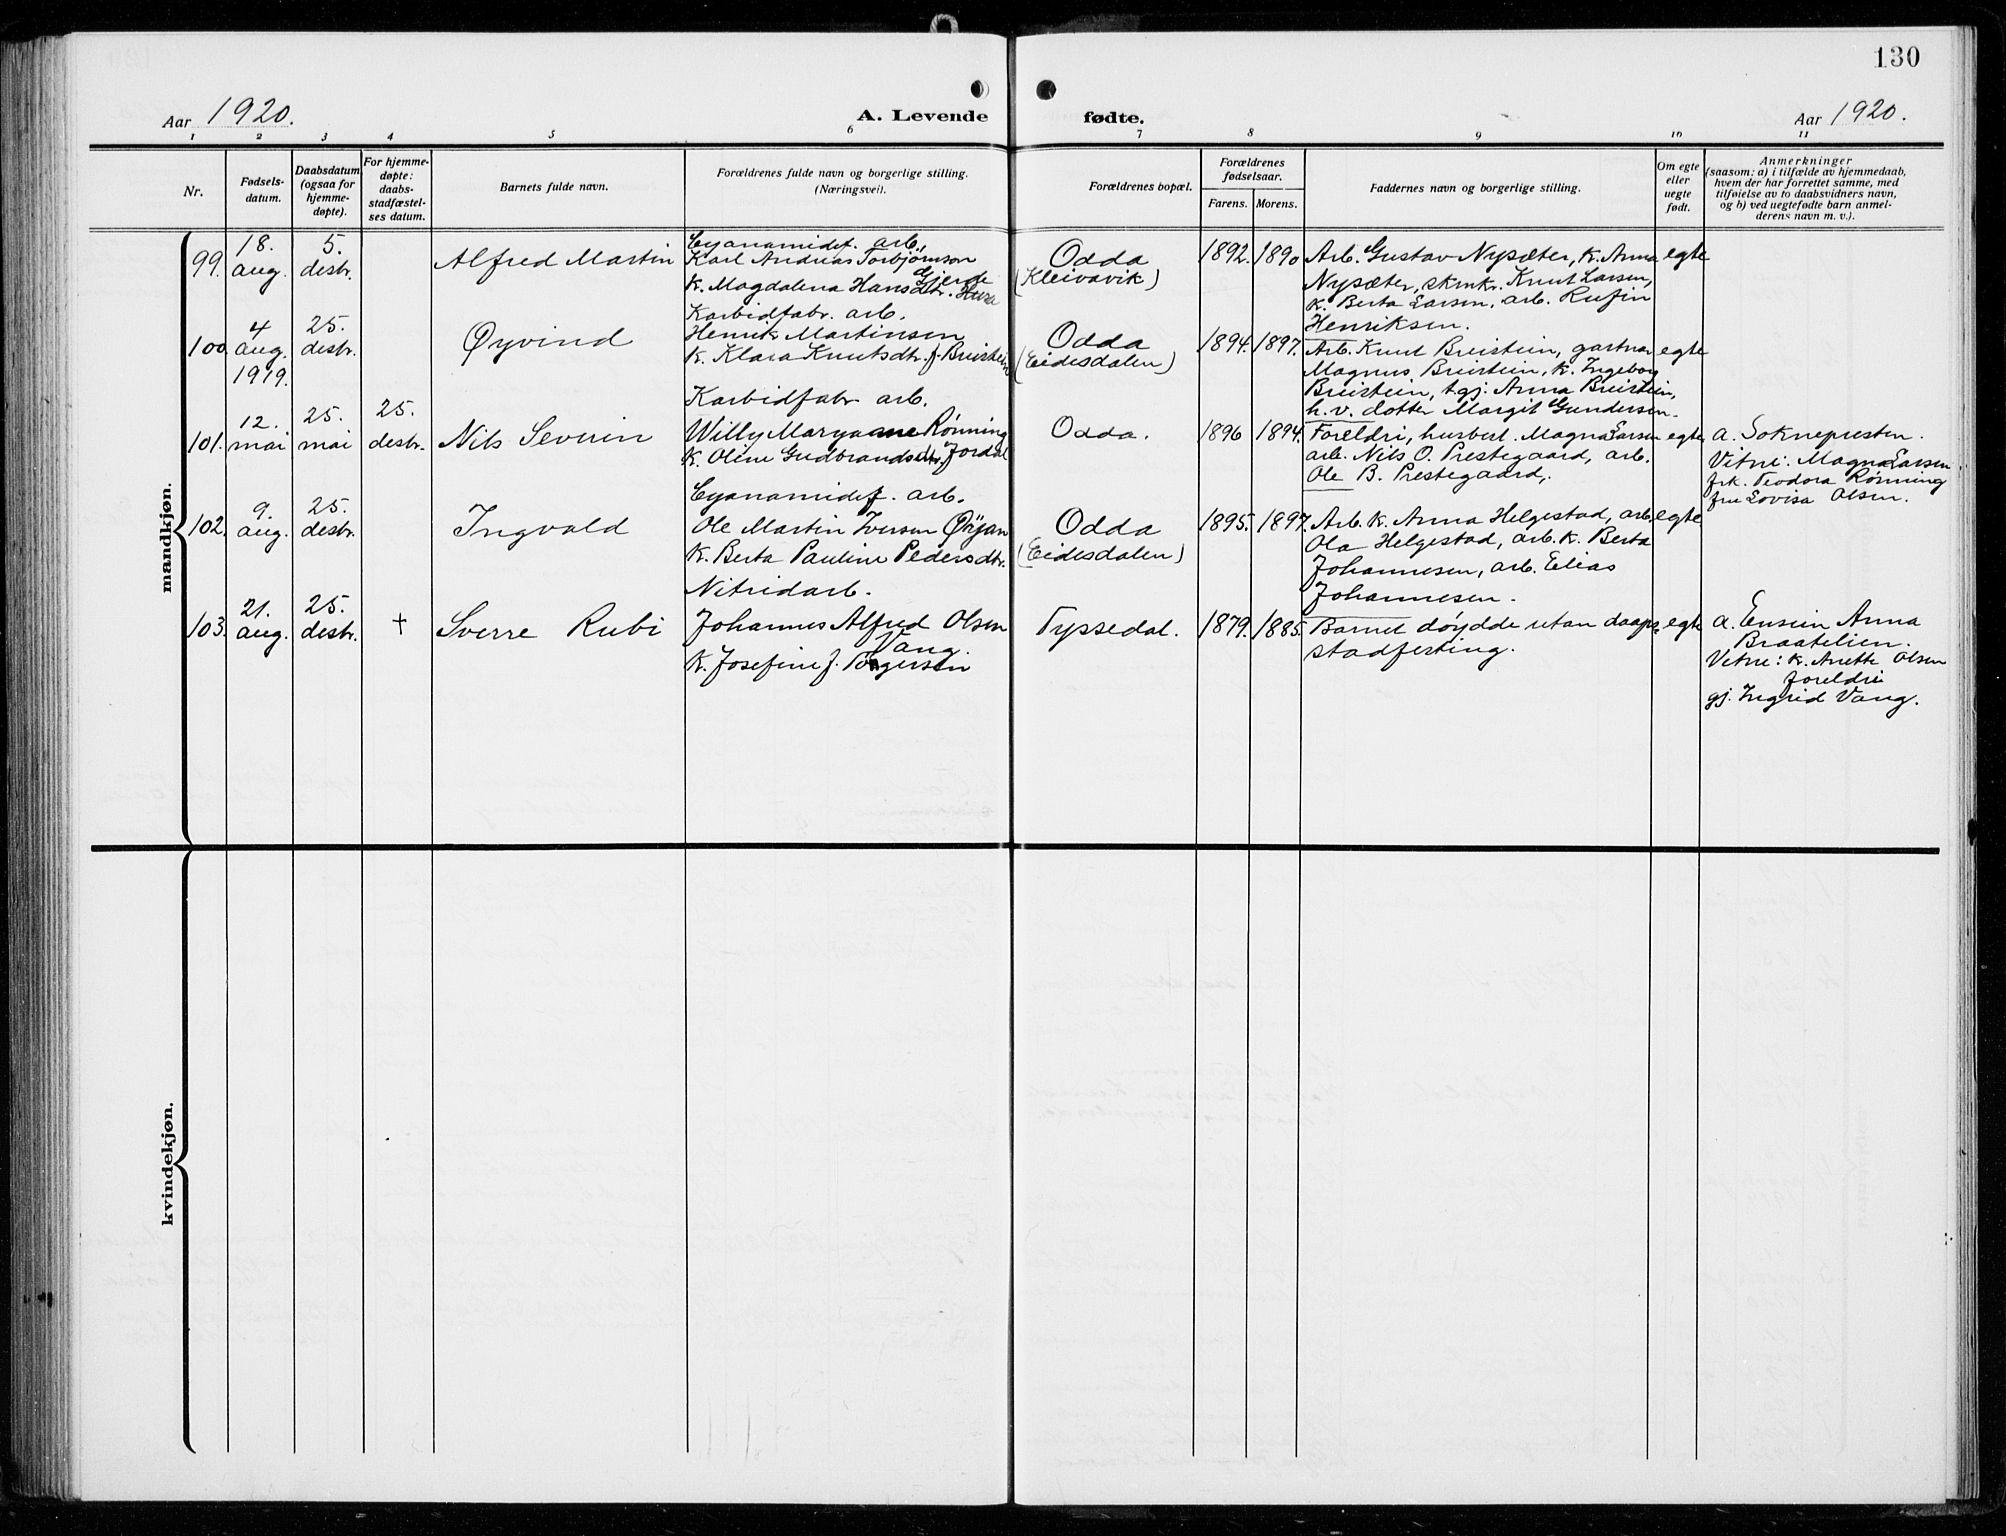 130
Aar 1920.
A. Levende fødte.
Aar 1920.
1 2 3 4 5 6 7 8 9 10 11
Nr.
Fødsels-
datum.
Daabsdatum
(ogsaa for
hjemme-
døpte).
For hjemme-
døpte:
daabs-
stadfæstel-
ses datum.
Barnets fulde navn.
Forældrenes fulde navn og borgerlige stilling.
(Næringsvei).
Forældrenes bopæl.
Forældrenes
fødselsaar.
Farens. Morens.
Faddernes navn og borgerlige stilling.
Om egte
eller
uegte
født.
Anmerkninger
(saasom: a) i tilfælde av hjemmedaab,
hvem der har forrettet samme, med
tilføielse av to daabsvidners navn,
og b) ved uegtefødte barn anmel-
derens navn m. v.).
mandkjøn.
99.
18.
aug.
5.
desbr.
Alfred Martin
Cyanamidf. arb.
Karl Andreas Torbjørnson
Gjerde
K. Magdalena Hansdtr. Husa
Odda
(Kleivavik)
1892. 1890
Arb. Gustav Nysæter, k. Anna
Nysæter, skmkr. Knut Larsen,
k. Berta Larsen, arb. Rufin
Henriksen.
egte
100.
4
aug.
1919.
25.
desbr.
Øyvind
Karbidfabr. arb.
Henrik Martinsen
K. Klara Knutsdtr. f. Breistein
Odda
(Eidesdalen)
1894. 1897.
Arb. Knut Breistein, gartnar
Magnus Breistein, k. Ingeborg
Breistein, tgj. Anna Breistein,
h.v. dotter Margit Gundersen.
egte
101.
12.
mai
25.
mai
25.
desbr.
Nils Severin
Karbidfabr. arb.
Willy Maryanne Rønning
K. Oline Gudbrandsdtr. f. Jordal
Odda.
1896 1894.
Foreldri, husbest. Magna Larsen
arb. Nils O. Prestegaard, arb.
Ole B. Prestegaard.
egte
a. Soknepresten.
Vitne: Magna Larsen
frk. Teodora Rønning
fru Lovisa Olsen.
102.
9.
aug.
25.
desbr.
Ingvald
Cyanamidf. arb.
Ole Martin Iversen Øijan
K. Berta Pauline Pedersdtr.
Odda
(Eidesdalen)
1895. 1897.
Arb. K. Anna Helgestad, arb.
Ola Helgestad, arb. k. Berta
Johannesen, arb. Elias
Johannesen.
egte
103.
21.
aug.
25.
desbr.
†
Sverre Rubi
Nitridarb.
Johannes Alfred Olsen
Vang.
K. Josefine f. Torgersen
Tyssedal.
1879. 1885.
Barnet døydde utan daaps-
stadfesting.
egte
a. Ensein Anna
Braatelien.
Vitne: k. Anette Olsen
foreldri
gj. Ingrid Vang.
kvindekjøn.